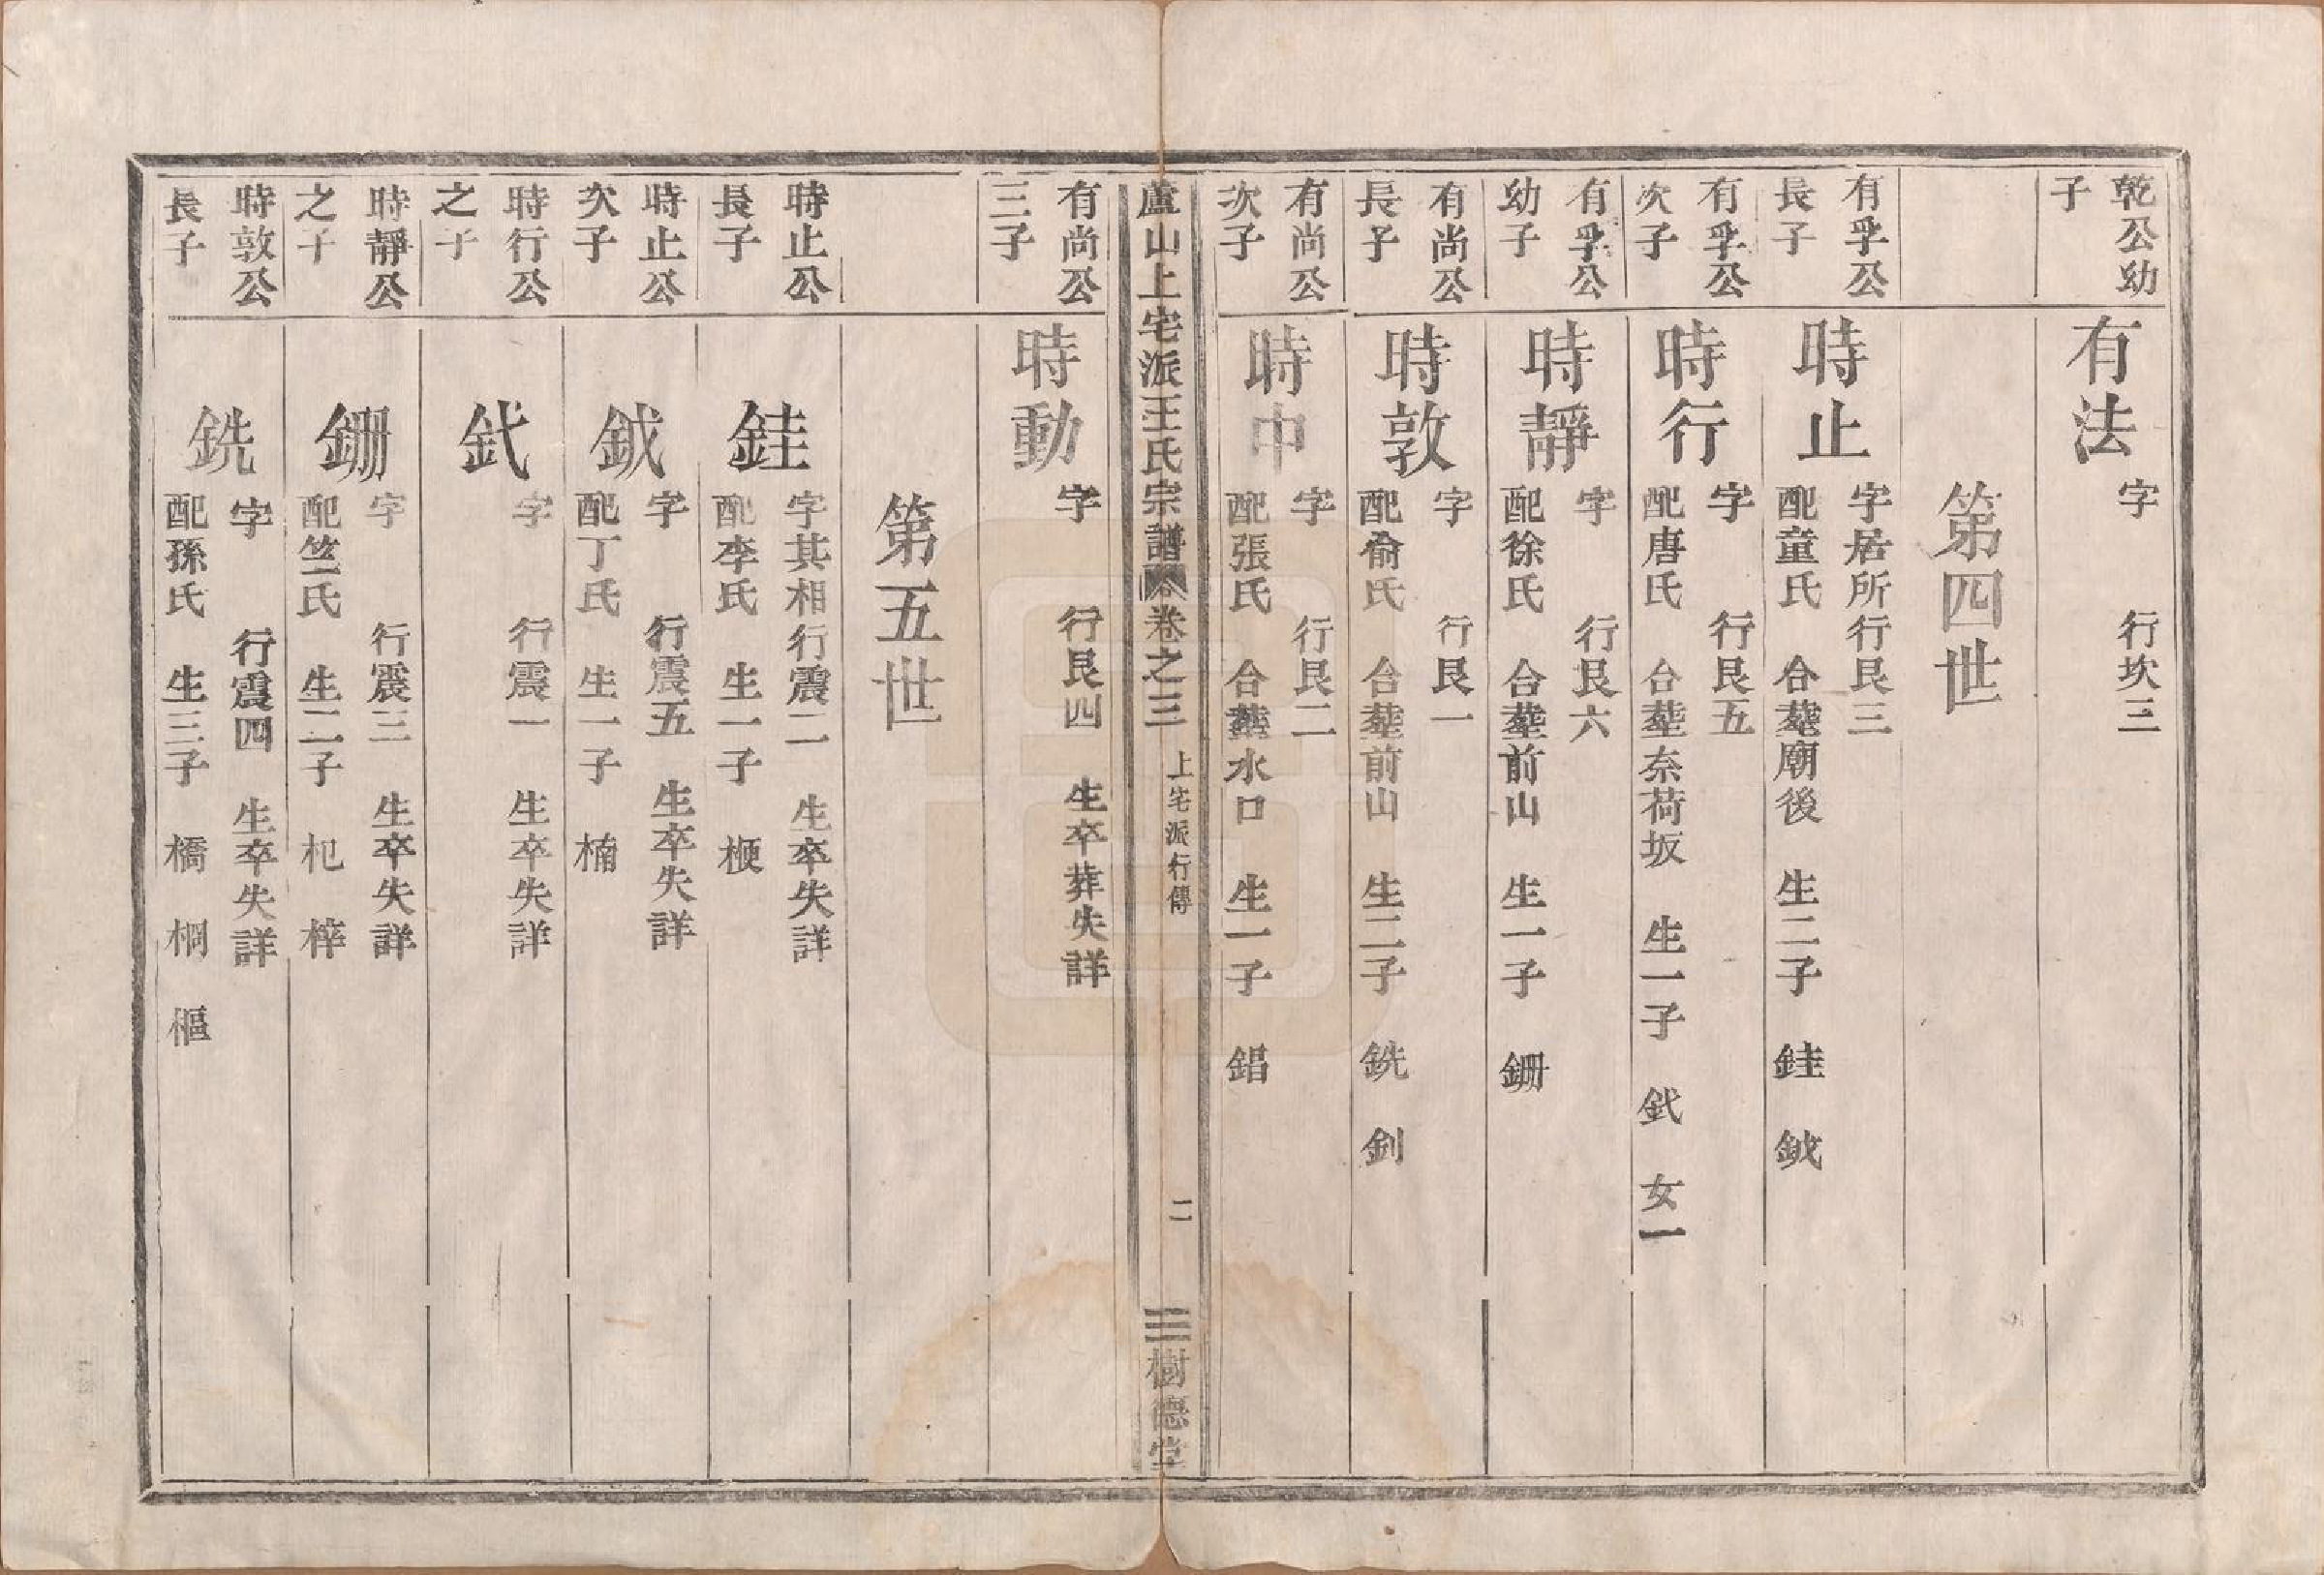 乾公幼
子
有法
字　行坎三
第四世
有孚公
長子
時止
字居所行艮三
配童氏　合塟廟後　生二子　銈　鉞
有孚公
次子
時行
字　行艮五
配唐氏　合塟奈荷坂　生一子　釴　女一
有孚公
幼子
時靜
字　行艮六
配徐氏　合塟前山　生一子　銏
有尚公
長子
時敦
字　行艮一
配俞氏　合塟前山　生二子　銑　釗
有尚公
次子
時中
字　行艮二
配張氏　合塟水口　生一子　錩
蘆山上宅派王氏宗譜　卷之三　上宅派行傳　二　三樹德堂
有尚公
三子
時動
字　行艮四　生卒葬失詳
第五世
時止公
長子
銈
字其相行震二　生卒失詳
配李氏　生一子　梗
時止公
次子
鉞
字　行震五　生卒失詳
配丁氏　生一子　楠
時行公
之子
釴
字　行震一　生卒失詳
時靜公
之子
銏
字　行震三　生卒失詳
配竺氏　生二子　杞　梓
時敦公
長子
銑
字　行震四　生卒失詳
配孫氏　生三子　橋　棡　樞